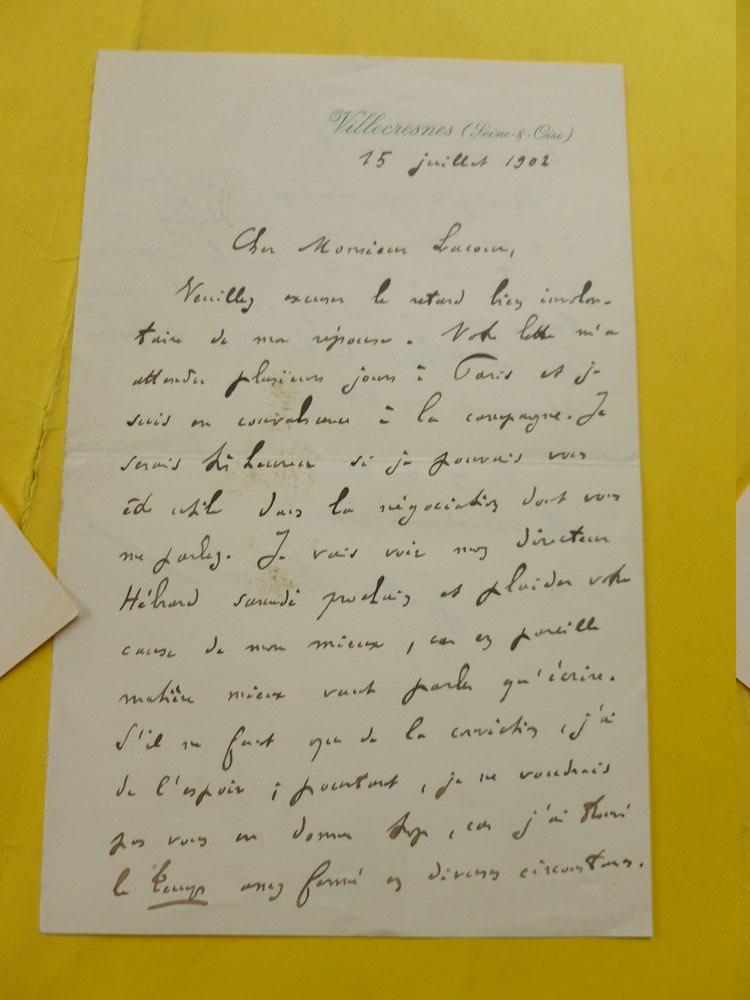 Villecresnes (Seine-&-Oise)
15 juillet 1902
Cher Monsieur Lacour,
Veuillez excuser le retard bien involon-
taire de ma réponse. Votre lettre m'a
attendu plusieurs jours à Paris et je
suis en convalescence à la campagne. Je
serais très heureux si je pouvais vous
être utile dans la négociation dont vous
me parlez. Je vais voir mon directeur
Hébrard samedi prochain et plaider votre
cause de mon mieux, car en pareille
matière mieux vaut parler qu'écrire.
S'il ne faut que de la conviction, j'ai
de l'espoir ; pourtant, je ne voudrais
pas vous en donner trop, car j'ai trouvé
le Temps assez fermé en diverses circonstances.